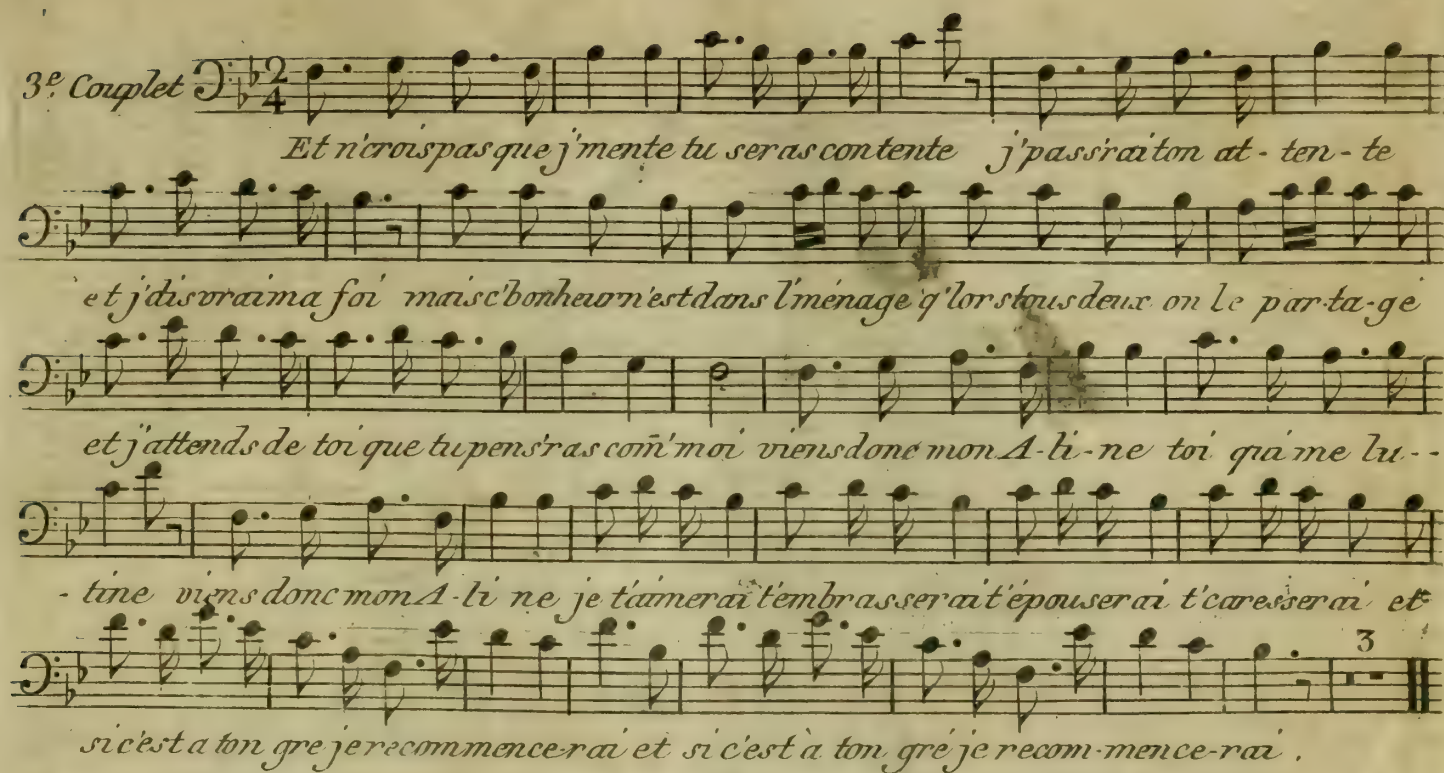 3e. Couplet 2 4
Et n'crois pas que j'mente tu seras contente j'pass'rai ton at-ten-te
et j'dis vrai ma foi mais c'bonheur n'est dans l'ménage q'lors tous deux on le par-ta-ge
et j'attends de toi que tu pens'ras com̄'moi viens donc mon A-li-ne toi qui me lu--
-tine viens donc mon A-li ne je t'aimerai t'embrasserai t'épouserai t'caresserai et
3
si c'est a ton gre je recommence-rai et si c'est à ton gré je recom-mence-rai.